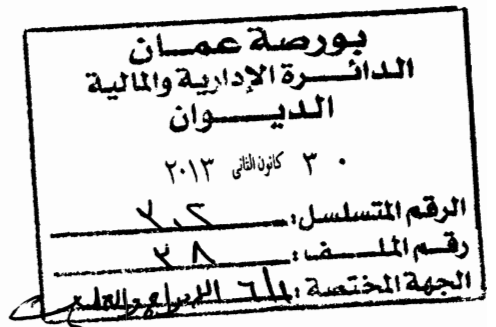 بورصة عمان
الدائرة الإدارية والمالية
الديوان
٣٠ كانون الثاني ٢٠١٣
الرقم المتسلسل:
رقم الملف: ٣٨
الجهة المختصة: